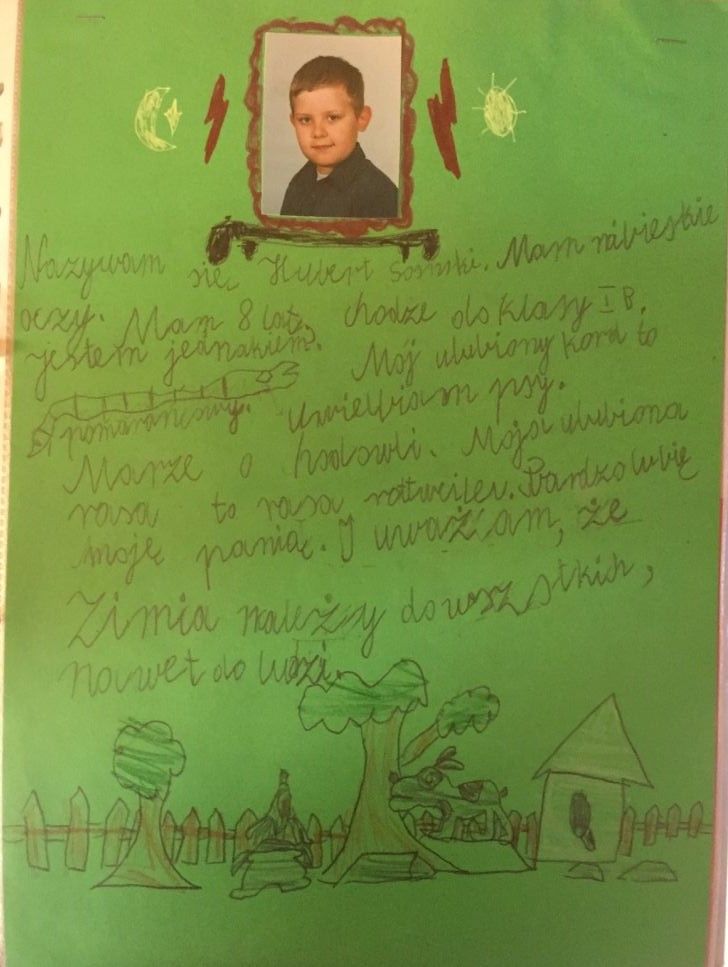 Nazywam się Hubert Sosński. Mam niebieskie
oczy. Mam 8 lat. chodze do klasy I B.
jestem jednakiem. Mój ulubiony kord to
pomarańcowy. Uwielbiam psy.
Marze o hodowli. Moja ulubiona
rasa to rasa rottweiler. Bardzo lubię
moję panią. I uważam, że
Zimia należy do wszstkich,
nawet do ludzi.